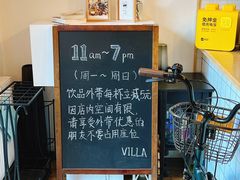 11am~7pm
(周一~周日)
饮品外带每杯立减5元
因店内空间有限
请享受外带优惠的
朋友不要占用座位
VILLA
免押金